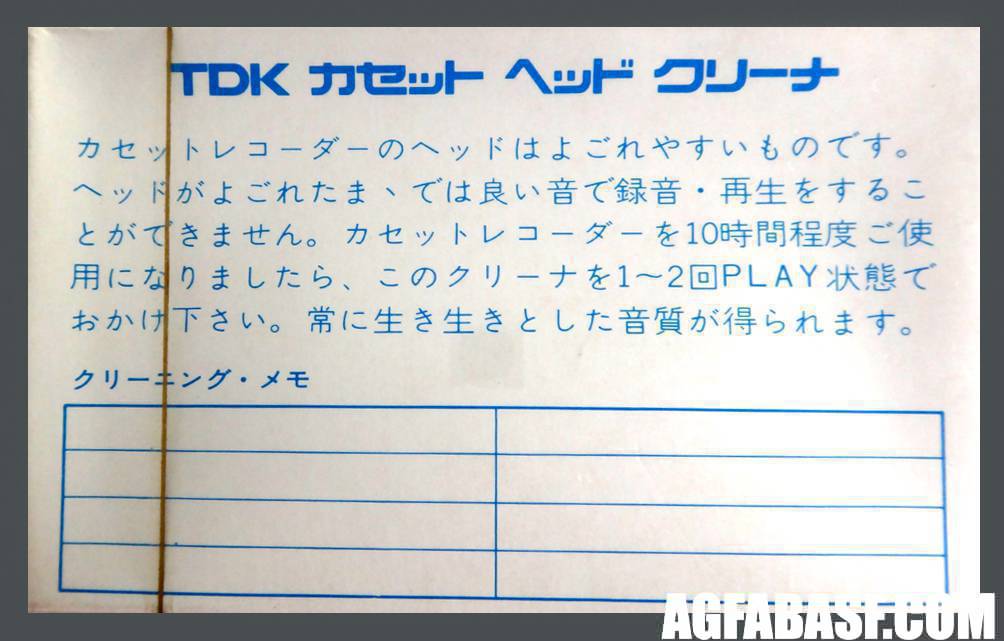 TDK カセット ヘッド クリーナ
カセットレコーダーのヘッドはよごれやすいものです。
ヘッドがよごれたまヽでは良い音で録音・再生をするこ
とができません。カセットレコーダーを10時間程度ご使
用になりましたら、このクリーナを1～2回PLAY状態で
おかけ下さい。常に生き生きとした音質が得られます。
クリーニング・メモ
AGFABASF.COM